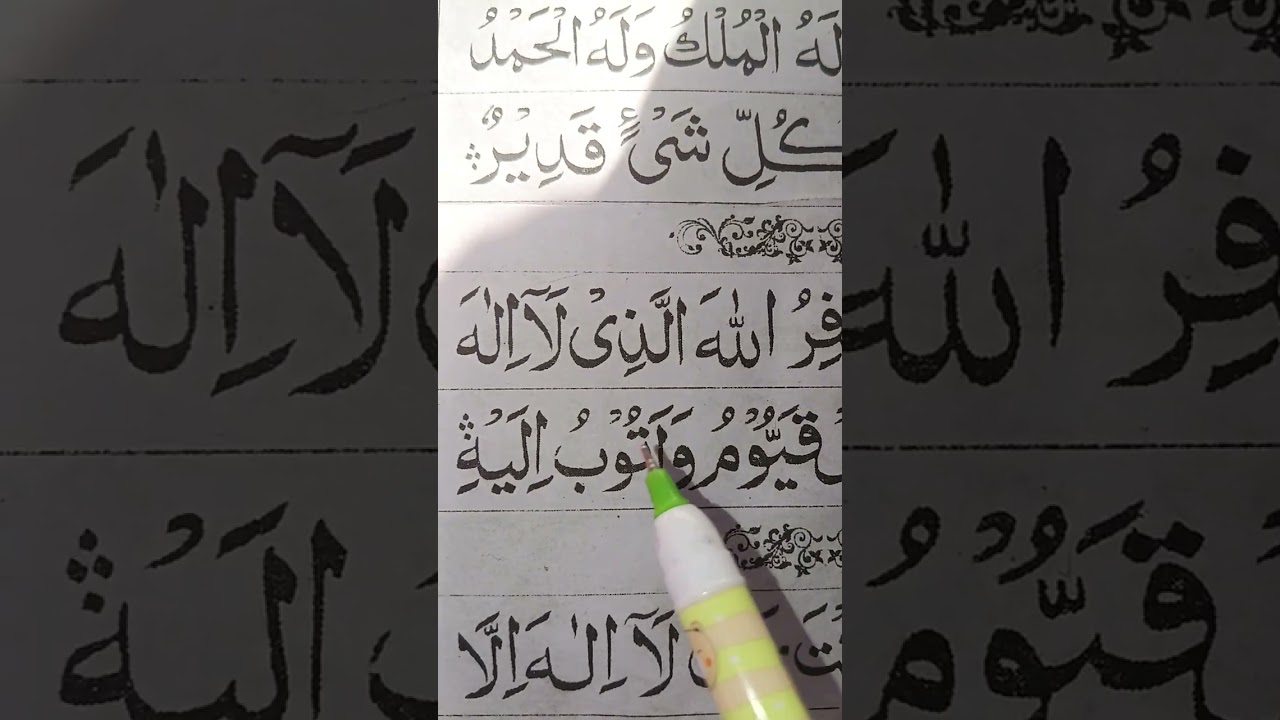 لَهُ الْمُلْكُ وَلَهُ الْحَمْدُ
كُلِّ شَیْءٍ قَدِيْرٌ
فِرُ اللّٰهَ الَّذِیْ لَآ اِلٰهَ
قَيُّوْمُ وَاَتُوْبُ اِلَيْهِ
لَآ اِلٰهَ اِلَّا